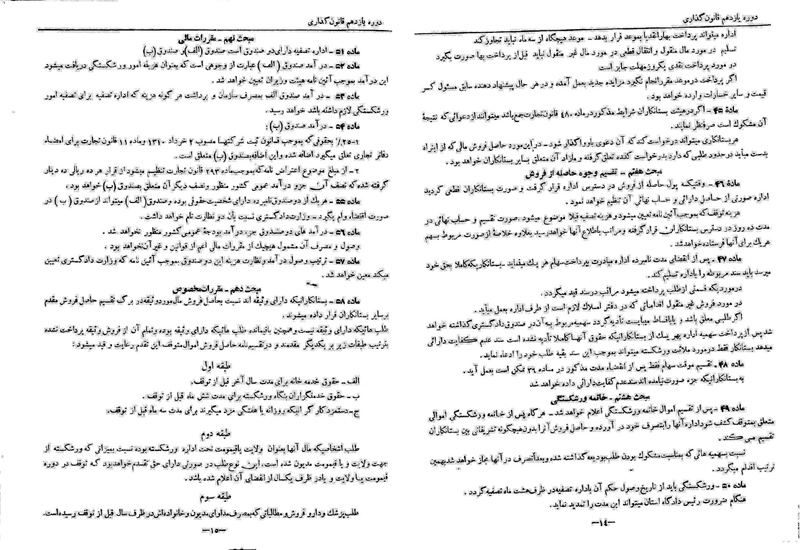 دوره یازدهم قانون گذاری
اداره میتواند پرداخت بهارا نقدیا بموعد قرار بدهد ـ موعد هیچگاه از سه ماه نباید تجاوز کند
تسلیم در مورد مال منقول و انتقال قطعی در مورد مال غیر منقول نباید قبل از پرداخت بها صورت بگیرد
در مورد پرداخت نقدی یکروز مهلت جایز است
اگر پرداخت در موعد مقرر انجام نگیرد مزایده جدید بعمل آمده و در هر حال پیشنهاد دهنده سابق مسئول کسر
قیمت و سایر خسارات وارده خواهد بود.
ماده ۴۵ ـ اگر در هیئت بستانکاران شرایط مذکور در ماده ۴۸۰ قانون تجارت جمع باشد میتوانند از دعوائی که نتیجهٔ
آن مشکوک است صرفنظر نمایند.
هر بستانکاری میتواند درخواست کند که آن دعوی باو واگذار شود ـ در این مورد حاصل فروش مالی که از این راه
بدست میآید در حدود طلبی که دارد بدرخواست کننده تعلق گرفته و مازاد آن متعلق بسایر بستانکاران خواهد بود.
مبحث هفتم ـ تقسیم وجوه حاصله از فروش
مادهٔ ۴۶ ـ وقتیکه پول حاصله از فروش در دسترس اداره قرار گرفت و صورت بستانکاران قطعی گردید
اداره صورتی از حاصل دارائی و حساب نهائی آن تنظیم خواهد نمود.
هزینه توقف که بموجب آئین نامه تعیین میشود و هزینه تصفیه قبلا موضوع میشود. صورت تقسیم و حساب نهائی در
مدت ده روز در دسترس بستانکاران قرار گرفته و مراتب باطلاع آنها خواهد رسید بعلاوه خلاصهٔ از صورت مربوط بسهم
هر یک برای آنها فرستاده خواهد شد.
ماده ۴۷ ـ پس از انقضای مدت نامبرده اداره مبادرت بپرداخت سهام هر یک مینماید. بستانکاریکه کاملا بحق خود
میرسد باید سند مربوطه را باداره تسلیم کند.
در موردیکه قسمتی از طلب پرداخته میشود مراتب در سند قید میگردد.
در مورد فروش غیر منقول اقداماتی که در دفتر املاک لازم است از طرف اداره بعمل میآید.
اگر طلبی معلق باشد و یا باقساط میبایست تأدیه گردد سهمیه مربوط به آن در صندوق دادگستری گذاشته خواهد
شد پس از پرداخت سهمیه اداره بهر یک از بستانکارانیکه حقوق آنها کاملا تأدیه نشده است سند عدم کفایت دارائی
میدهد بستانکار فقط در مورد ملائت ورشکسته میتواند بموجب این سند بقیه طلب خود را ادعاء نماید.
ماده ۴۸ ـ تقسیم موقت سهام فقط پس از انقضاء مدت مذکور در ماده ۳۶ ممکن است بعمل آید.
به بستانکارانیکه جزء صورت نیامده اند سند عدم کفایت دارائی داده خواهد شد
مبحث هشتم ـ خاتمه ورشکستگی
مادهٔ ۴۹ ـ پس از تقسیم اموال خاتمه ورشکستگی اعلام خواهد شد ـ هرگاه پس از خاتمه ورشکستگی اموالی
متعلق بمتوقف کشف شود اداره آنها را بتصرف خود در آورده و حاصل فروش آنرا بدون هیچگونه تشریفاتی بین بستانکاران
تقسیم می کند.
نسبت بسهمیه مالی که بمناسبت مشکوک بودن طلب بودیعه گذاشته شده و بعداً تصرف در آنها مجاز خواهد شد بهمین
ترتیب اقدام میگردد.
ماده ۵۰ ـ ورشکستگی باید از تاریخ وصول حکم آن باداره تصفیه در ظرف هشت ماه تصفیه گردد.
هنگام ضرورت رئیس دادگاه استان میتواند این مدت را تمدید نماید.
ـ۱۴ـ
دوره یازدهم قانون گذاری
مبحث نهم ـ مقررات مالی
ماده ۵۱ ـ اداره تصفیه دارای دو صندوق است صندوق (الف) و صندوق (ب)
ماده ۵۲ ـ در آمد صندوق (الف) عبارت از وجوهی است که بعنوان هزینه امور ورشکستگی دریافت میشود
این در آمد بموجب آئین نامه هیئت وزیران تعیین خواهد شد.
ماده ۵۳ ـ در آمد صندوق الف بمصرف سازمان و پرداخت هر گونه هزینه که اداره تصفیه برای تصفیه امور
ورشکستگی لازم داشته باشد خواهد رسید.
ماده ۵۴ ـ در آمد صندوق (ب):
۱ـ ٪۲۵ بحقوقی که بموجب قانون ثبت شرکتها مصوب ۲ خرداد ۱۳۱۰ و ماده ۱۱ قانون تجارت برای امضاء
دفاتر تجاری تعلق میگیرد اضافه شده و این اضافه بصندوق (ب) متعلق است.
۲ ـ از مبلغ موضوع اعتراض نامه که بموجب ماده ۲۹۳ قانون تجارت تنظیم میشود از قرار هر ده ریالی ده دینار
گرفته شده که نصف آن جزء درآمد عمومی کشور منظور و نصف دیگر آن متعلق بصندوق (ب) خواهد بود.
ماده ۵۵ ـ هر یک از دو صندوق نامبرده دارای شخصیت حقوقی بوده و صندوق (الف) میتواند از صندوق (ب) در
صورت اقتضاء وام بگیرد ـ وزارت دادگستری نسبت بآن دو نظارت تام خواهد داشت.
ماده ۵۶ ـ درآمد های دو صندوق جزء درآمد بودجهٔ عمومی کشور منظور نخواهد شد.
وصول و مصرف آن مشمول هیچیک از مقررات مالی اعم از قوانین و غیر آن نخواهد بود.
ماده ۵۷ ـ ترتیب وصول درآمد و نظارت هزینه این دو صندوق. بموجب آئین نامهٔ که وزارت دادگستری تعیین
میکند معین خواهد شد.
مبحث دهم ـ مقررات مخصوص
ماده ۵۸ ـ بستانکارانیکه دارای وثیقه اند نسبت بحاصل فروش مال مورد وثیقه در برگ تقسیم حاصل فروش مقدم
بر سایر بستانکاران قرار داده میشوند.
طلب هائیکه دارای وثیقه نیست و همچنین باقیمانده طلب هائیکه دارای وثیقه بوده و تمام آن از فروش وثیقه پرداخت نشده
بترتیب طبقات زیر بر یکدیگر مقدمند و در تقسیم نامه حاصل فروش اموال متوقف این تقدم رعایت و قید میشود:
طبقه اول
الف ـ حقوق خدمه خانه برای مدت سال آخر قبل از توقف.
ب ـ حقوق خدمتگزاران بنگاه ورشکسته برای مدت شش ماه قبل از توقف.
ج ـ دستمزد کارگرانیکه روزانه یا هفتگی مزد میگیرند برای مدت سه ماه قبل از توقف.
طبقه دوم
طلب اشخاصیکه مال آنها بعنوان ولایت یا قیمومت تحت اداره ورشکسته بوده نسبت بمیزانی که ورشکسته از
جهت ولایت و یا قیمومت مدیون شده است. این نوع طلب در صورتی دارای حق تقدم خواهد بود که توقف در دوره
قیمومت یا ولایت و یا در ظرف یکسال از انقضای آن اعلام شده باشد.
طبقه سوم
طلب پزشک و دارو فروش و مطالباتی که بمصرف مداوای مدیون و خانواده اش در ظرف سال قبل از توقف رسیده است.
ـ۱۵ـ